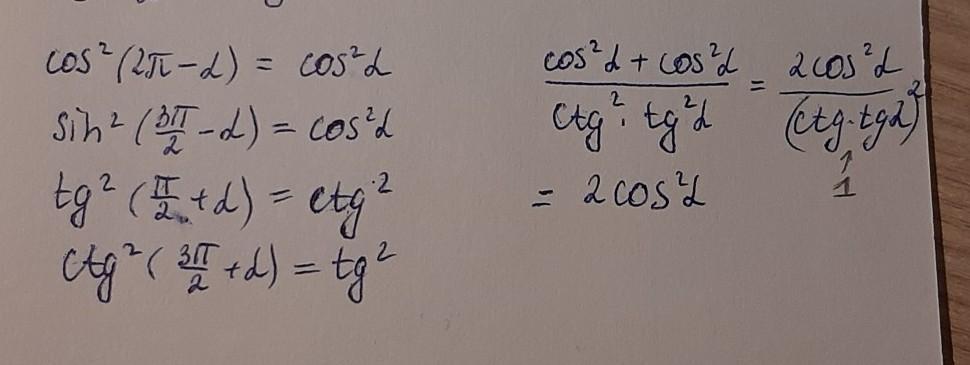 cos²(2π-α) = cos²α
sin²(3π/2-α) = cos²α
tg²(π/2+α) = ctg²
ctg²(3π/2+α) = tg²
(cos²α + cos²α)/(ctg² · tg²α) = 2cos²α/(ctg·tgα)²
↑
1
= 2cos²α